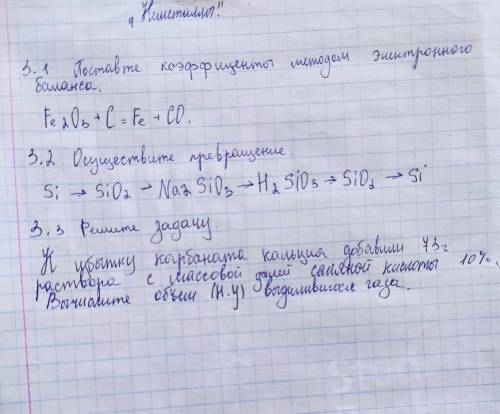 "Неметаллы."
3.1 Поставте коэффиценты методом электронного
баланса.
Fe₂O₃ + C = Fe + CO.
3.2 Осуществите превращение.
Si → SiO₂ → Na₂SiO₃ → H₂SiO₃ → SiO₂ → Si
3.3 Решите задачу.
К избытку карбаната кальция добавили 73г
раствора с массовой долей саляной кислоты 10%.
Вычислите объем (Н.У) выделившегося газа.